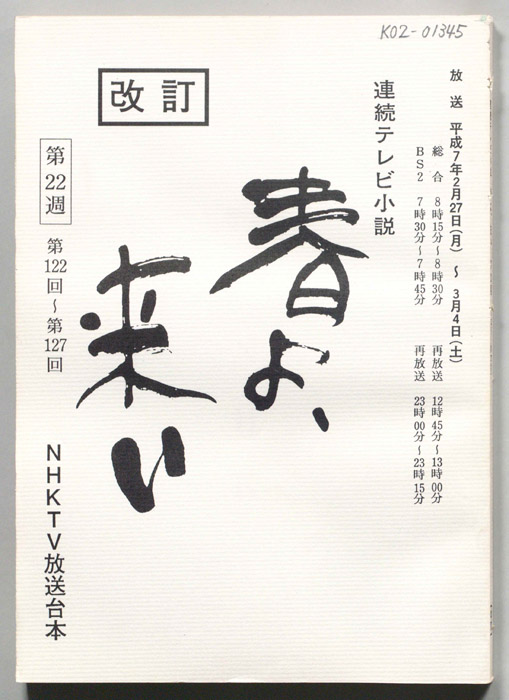 K02-01345
放送 平成7年2月27日(月) ～ 3月4日(土)
総合 8時15分～8時30分 再放送 12時45分～13時00分
BS2 7時30分～7時45分 再放送 23時00分～23時15分
連続テレビ小説
春よ、
来い
改訂
第22週
第122回～第127回
NHKTV放送台本